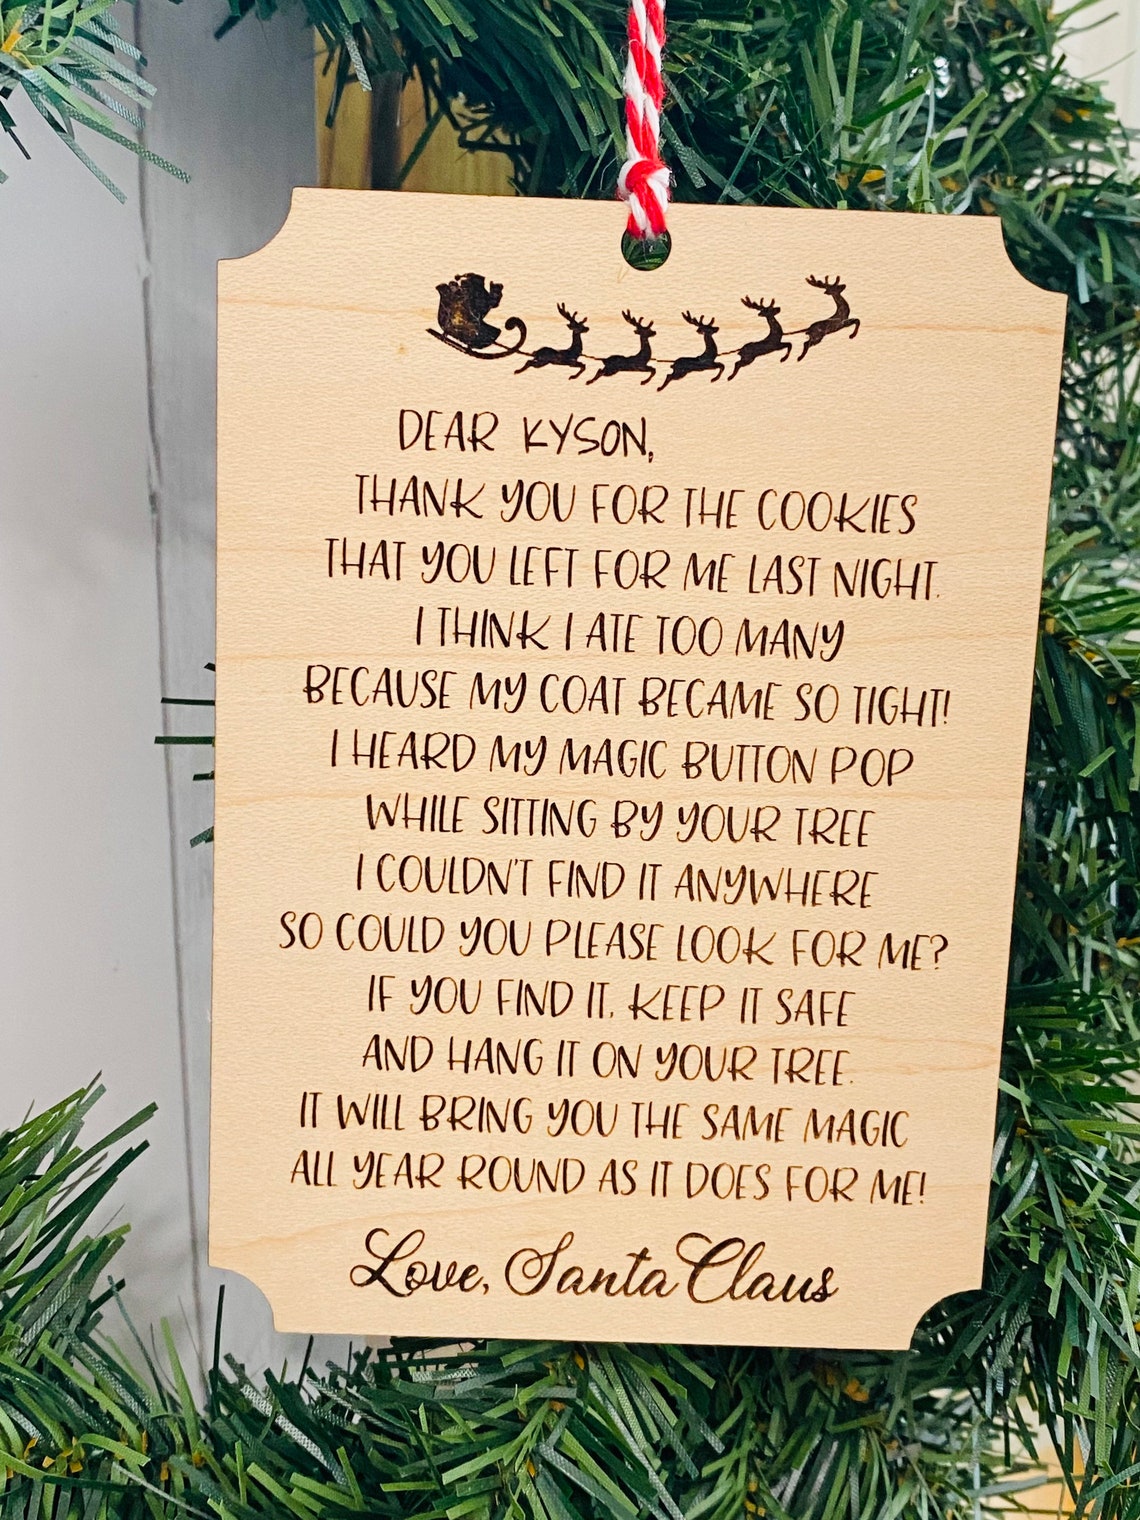 DEAR KYSON,
THANK YOU FOR THE COOKIES
THAT YOU LEFT FOR ME LAST NIGHT.
I THINK I ATE TOO MANY
BECAUSE MY COAT BECAME SO TIGHT!
I HEARD MY MAGIC BUTTON POP
WHILE SITTING BY YOUR TREE
I COULDN'T FIND IT ANYWHERE
SO COULD YOU PLEASE LOOK FOR ME?
IF YOU FIND IT, KEEP IT SAFE
AND HANG IT ON YOUR TREE.
IT WILL BRING YOU THE SAME MAGIC
ALL YEAR ROUND AS IT DOES FOR ME!
Love, Santa Claus